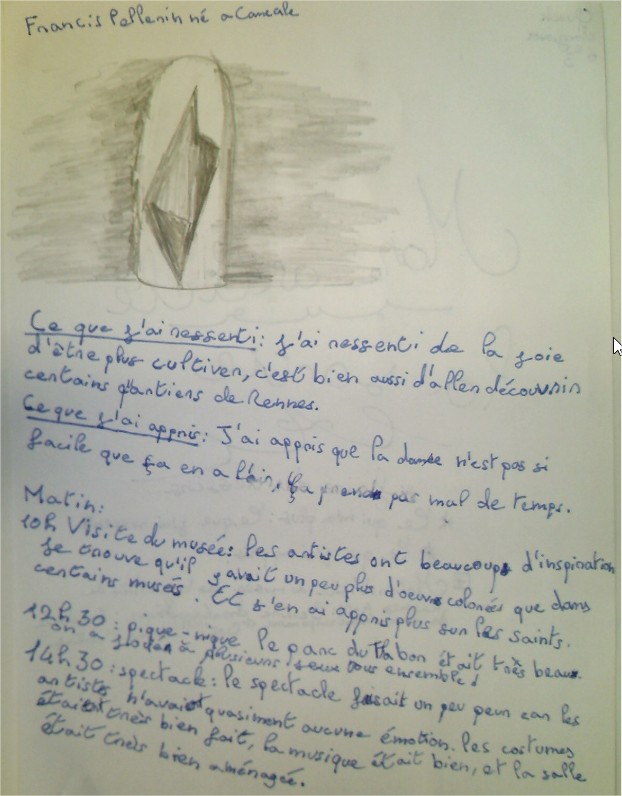 Francis Pellerin né a Cancale
Ce que j'ai ressenti : j'ai ressenti de la joie
d'être plus cultiver, c'est bien aussi d'aller découvrir
certains qartiers de Rennes.
Ce que j'ai appris : J'ai appris que la danse n'est pas si
facile que ça en a l'air, ça prend pas mal de temps.
Matin:
10h Visite du musée: les artistes ont beaucoup d'inspiration
je trouve qu'il y avait un peu plus d'oeuvre colorées que dans
certains musés. Et j'en ai appris plus sur les saints.
12h30 : pique-nique le parc du Thabor était très beau.
on a joué à plusieurs jeux tous ensemble !
14h30 : spectacle : le spectacle fesait un peu peur car les
artiste n'avait quasiment aucune émotion. les costumes
était très bien fait, la musique était bien, et la salle
était très bien aménagée.